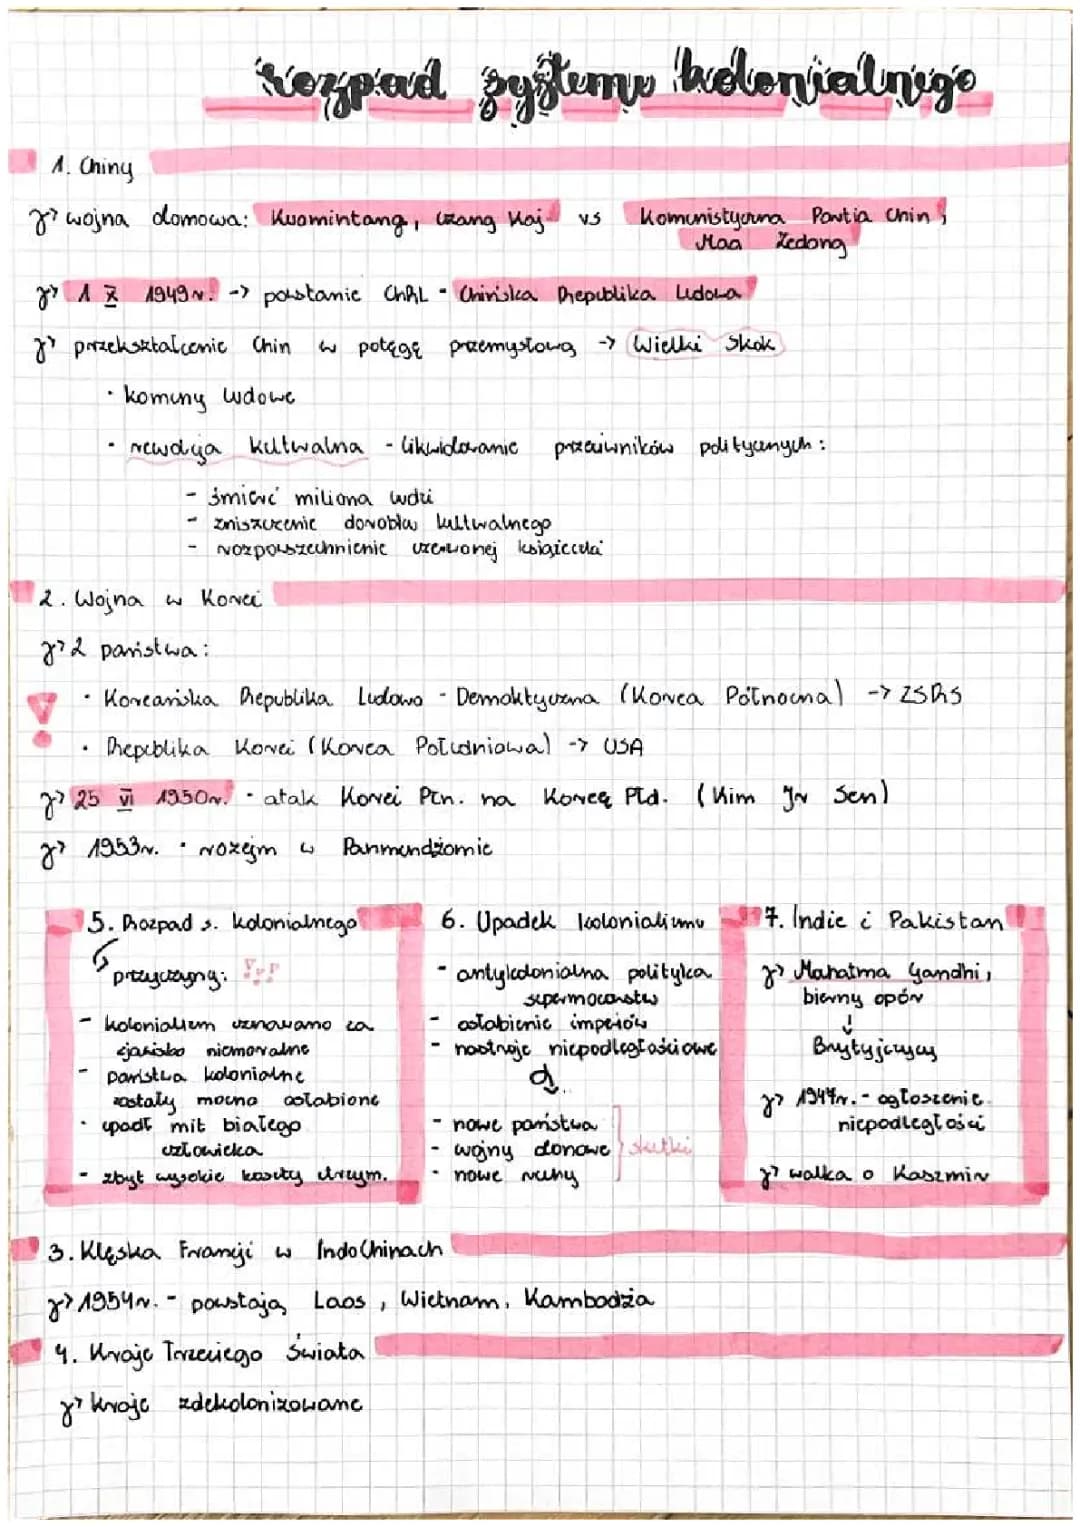 rozpad systemu kolonialnego
1. Chiny
wojna domowa: Kuomintang, Czang Kaj- vs Komunistyczna Partia Chin,
Mao Zedong
1 X 1949r. -> powstanie ChRL - Chińska Republika Ludowa
przekształcenie Chin w potęgę przemysłową -> Wielki Skok
· komuny ludowe
· rewolucja kulturalna - likwidowanie przeciwników politycznych:
- śmierć miliona ludzi
- zniszczenie dorobku kulturalnego
- rozpowszechnienie czerwonej książeczki
2. Wojna w Korei
2 państwa:
· Koreańska Republika Ludowo - Demoktyczna (Korea Północna) -> ZSRS
· Republika Korei (Korea Południowa) -> USA
25 VI 1950r. - atak Korei Płn. na Koreę Płd. (Kim Ir Sen)
1953r. · rozejm w Panmundżomie
5. Rozpad s. kolonialnego
przyczyny:
- kolonializm uznawano za
zjawisko niemoralne
- państwa kolonialne
zostały mocno osłabione
· upadł mit białego
człowieka
- zbyt wysokie koszty utrzym.
6. Upadek kolonializmu
- antykolonialna polityka
supermocarstw
- osłabienie imperiów
- nastroje niepodległościowe
- nowe państwa
- wojny domowe
- nowe ruchy
skutki
7. Indie i Pakistan
Mahatma Gandhi,
bierny opór
↓
Brytyjczycy
1947r. - ogłoszenie
niepodległości
walka o Kaszmir
3. Klęska Francji w IndoChinach
1954r. - powstają Laos, Wietnam, Kambodża
4. Kraje Trzeciego Świata
kraje zdekolonizowane